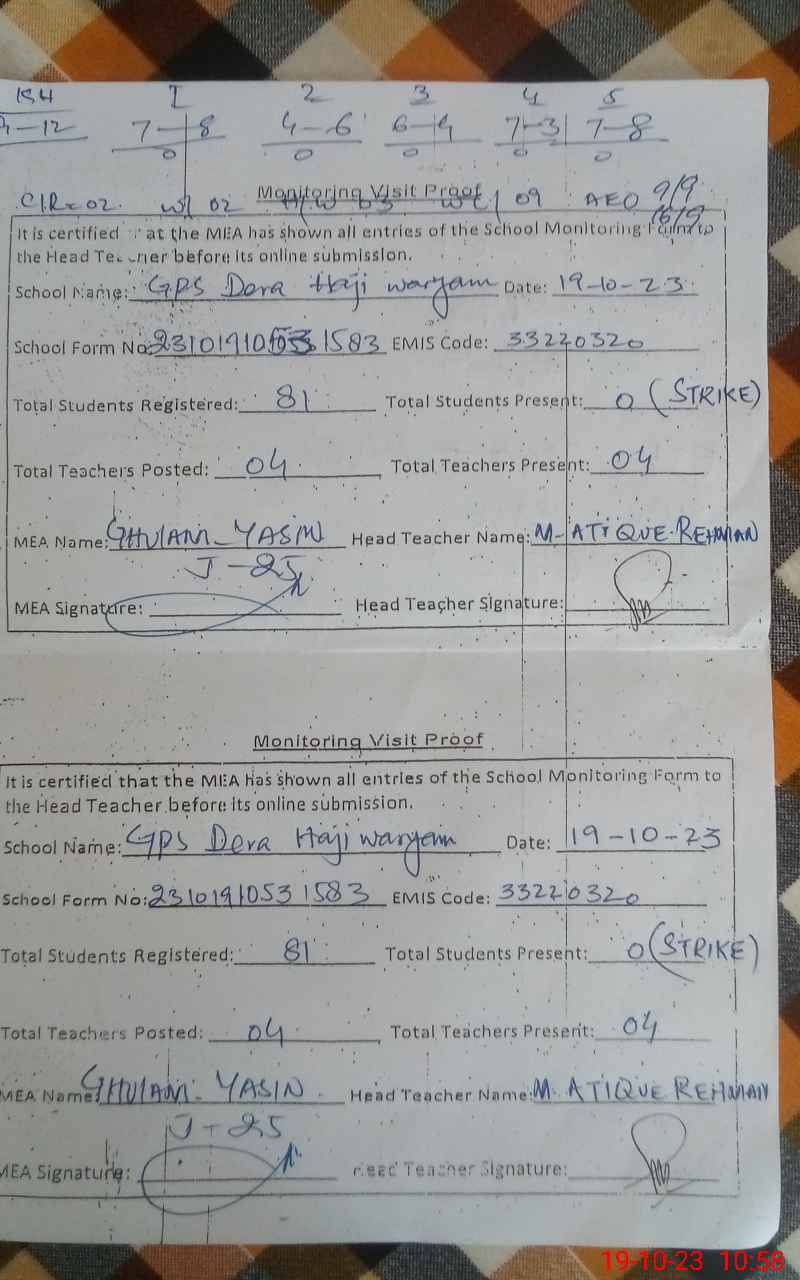 1 2 3 4 5
-12 7-8 4-6 6-4 7-3 7-8
0 0 0 0 0
CLR=02 w/ 02 09 AEO 9/9
Monitoring Visit Proof
16/9
It is certified at the MEA has shown all entries of the School Monitoring Form to
the Head Teacher before its online submission.
School Name: GPS Dera Haji waryam Date: 19-10-23
School Form No: 2310191053 1583 EMIS Code: 33220320
Total Students Registered: 81 Total Students Present: 0 (STRIKE)
Total Teachers Posted: 04 Total Teachers Present: 04
MEA Name: GHULAM-YASIN Head Teacher Name: M-ATIQUE-REHMAN
J-25
MEA Signature: Head Teacher Signature:
Monitoring Visit Proof
It is certified that the MEA has shown all entries of the School Monitoring Form to
the Head Teacher before its online submission.
School Name: GPS Dera Haji waryam Date: 19-10-23
School Form No: 2310191053 1583 EMIS Code: 33220320
Total Students Registered: 81 Total Students Present: 0 (STRIKE)
Total Teachers Posted: 04 Total Teachers Present: 04
MEA Name: GHULAM-YASIN Head Teacher Name: M. ATIQUE REHMAN
J-25
MEA Signature: Head Teacher Signature:
19-10-23 10:58